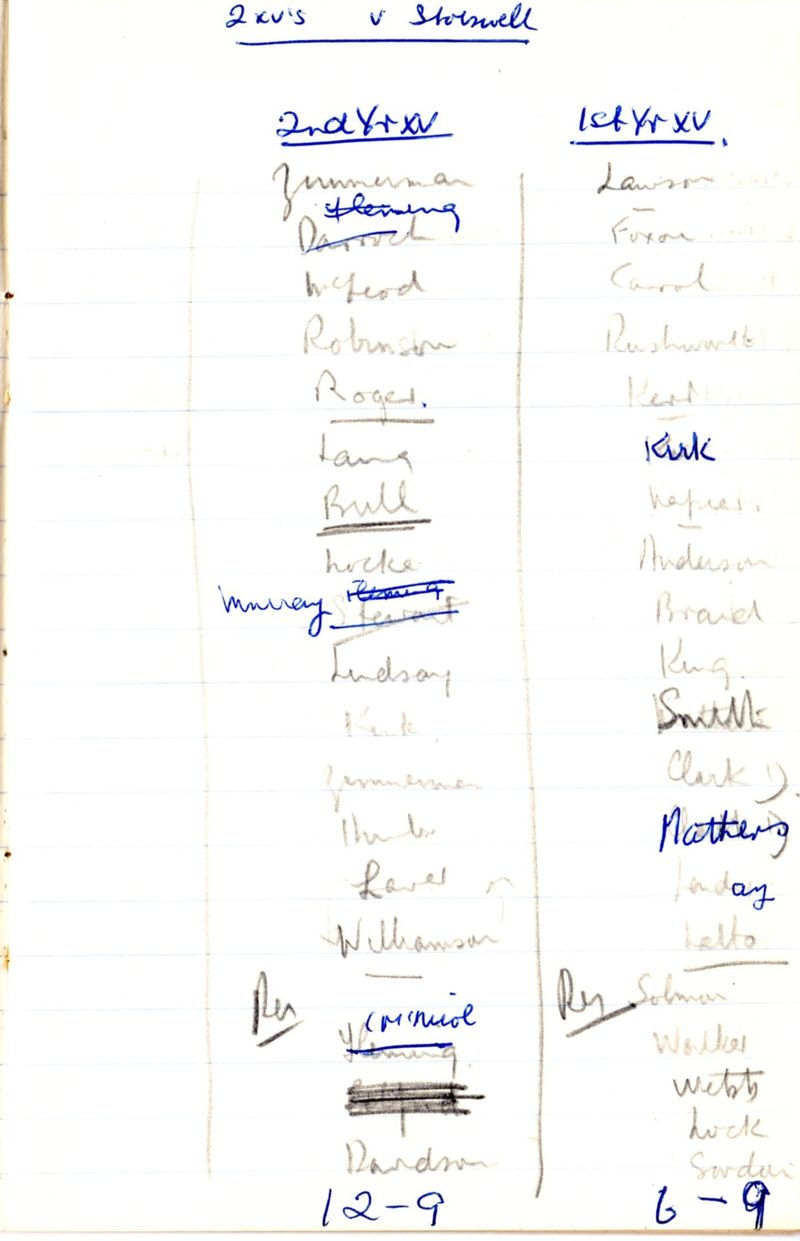 2 xv's v Stobswell
2nd Yr XV
Zimmerman
Fleming
Darroch
McLeod
Robinson
Roger.
Laing
Bull
Locke
Murray Fleming
Stewart
Lindsay
Kerk
Zimmerman
Williamson
Res
McNicol
Fleming
Davidson
12 - 9
1st Yr XV.
Lawson
Foxon
Carrol
Rushworth
Kerr
Kirk
Napier.
Anderson
Braid
King
Smith
Clark D.
Mathers
Lindsay
Res Solman
Walker
Webb
Lock
6 - 9